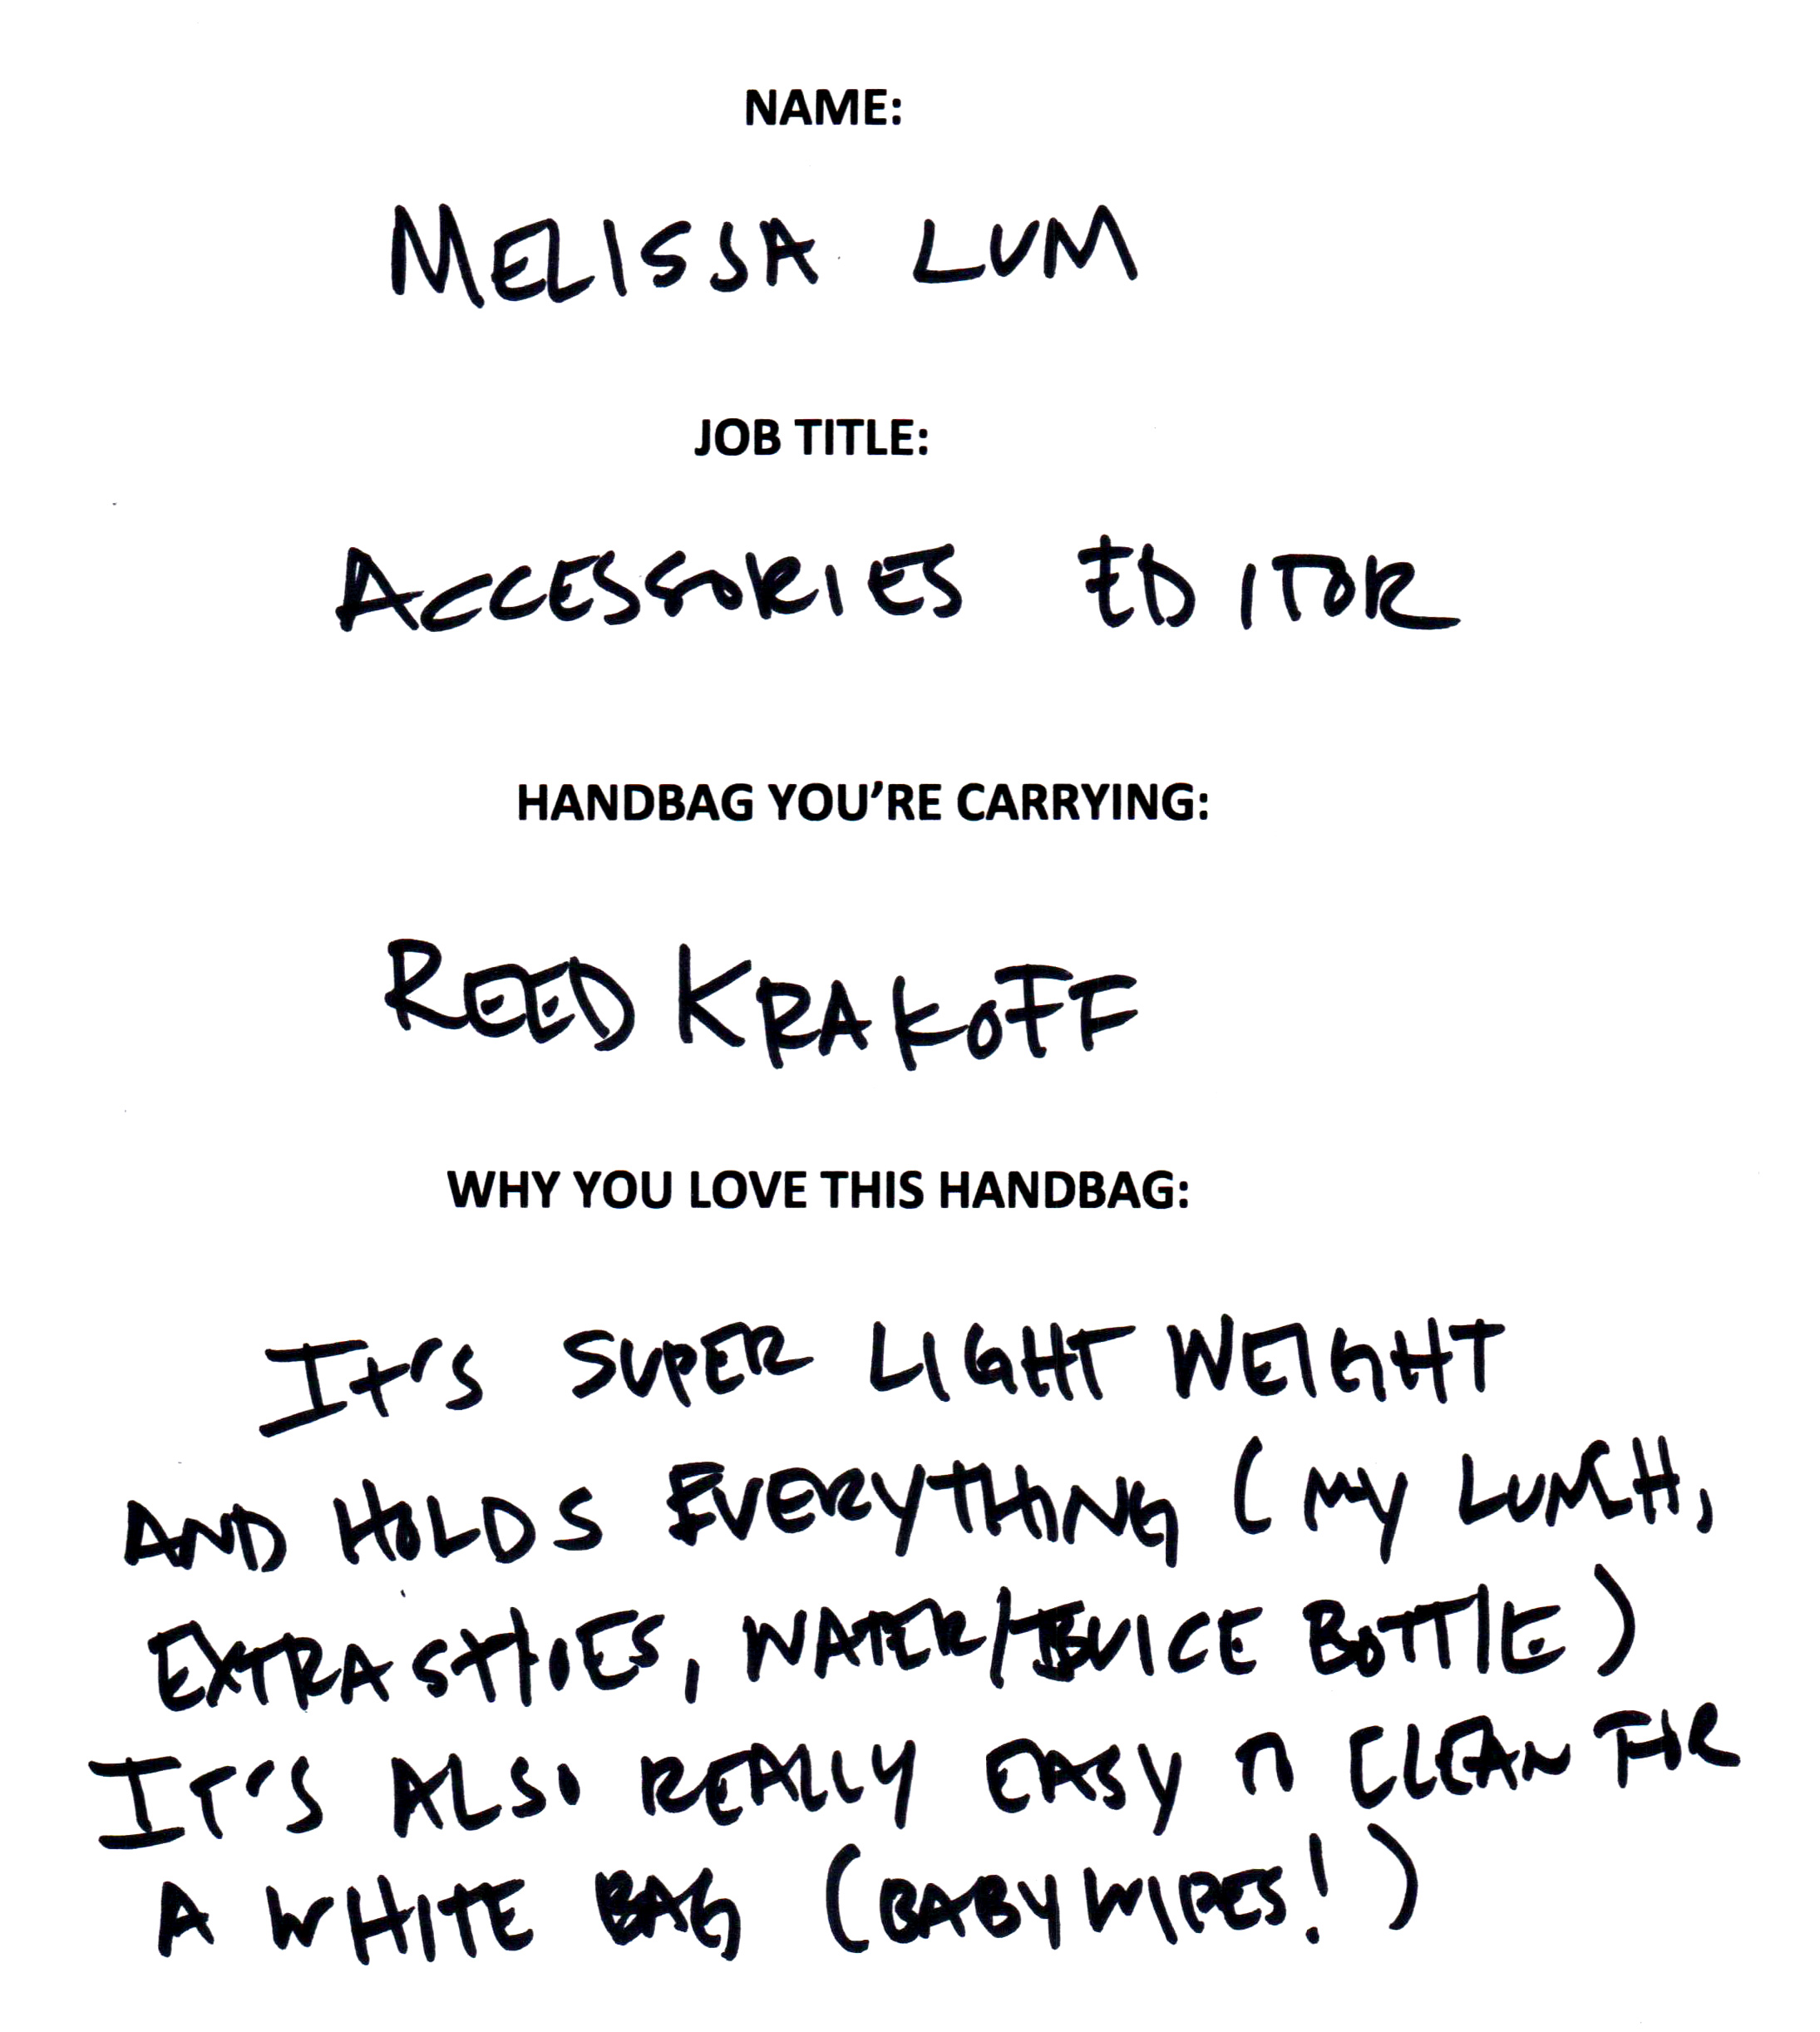 NAME:
MELISSA LUM
JOB TITLE:
ACCESSORIES EDITOR
HANDBAG YOU'RE CARRYING:
REED KRAKOFF
WHY YOU LOVE THIS HANDBAG:
IT'S SUPER LIGHT WEIGHT
AND HOLDS EVERYTHING (MY LUNCH,
EXTRA SHOES, WATER/JUICE BOTTLE)
IT'S ALSO REALLY EASY TO CLEAN FOR
A WHITE BAG (BABY WIPES!)